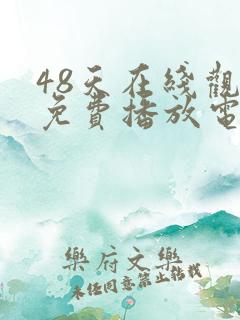 48天在线觀
免費播放電
樂府文樂
未经同意禁止转载